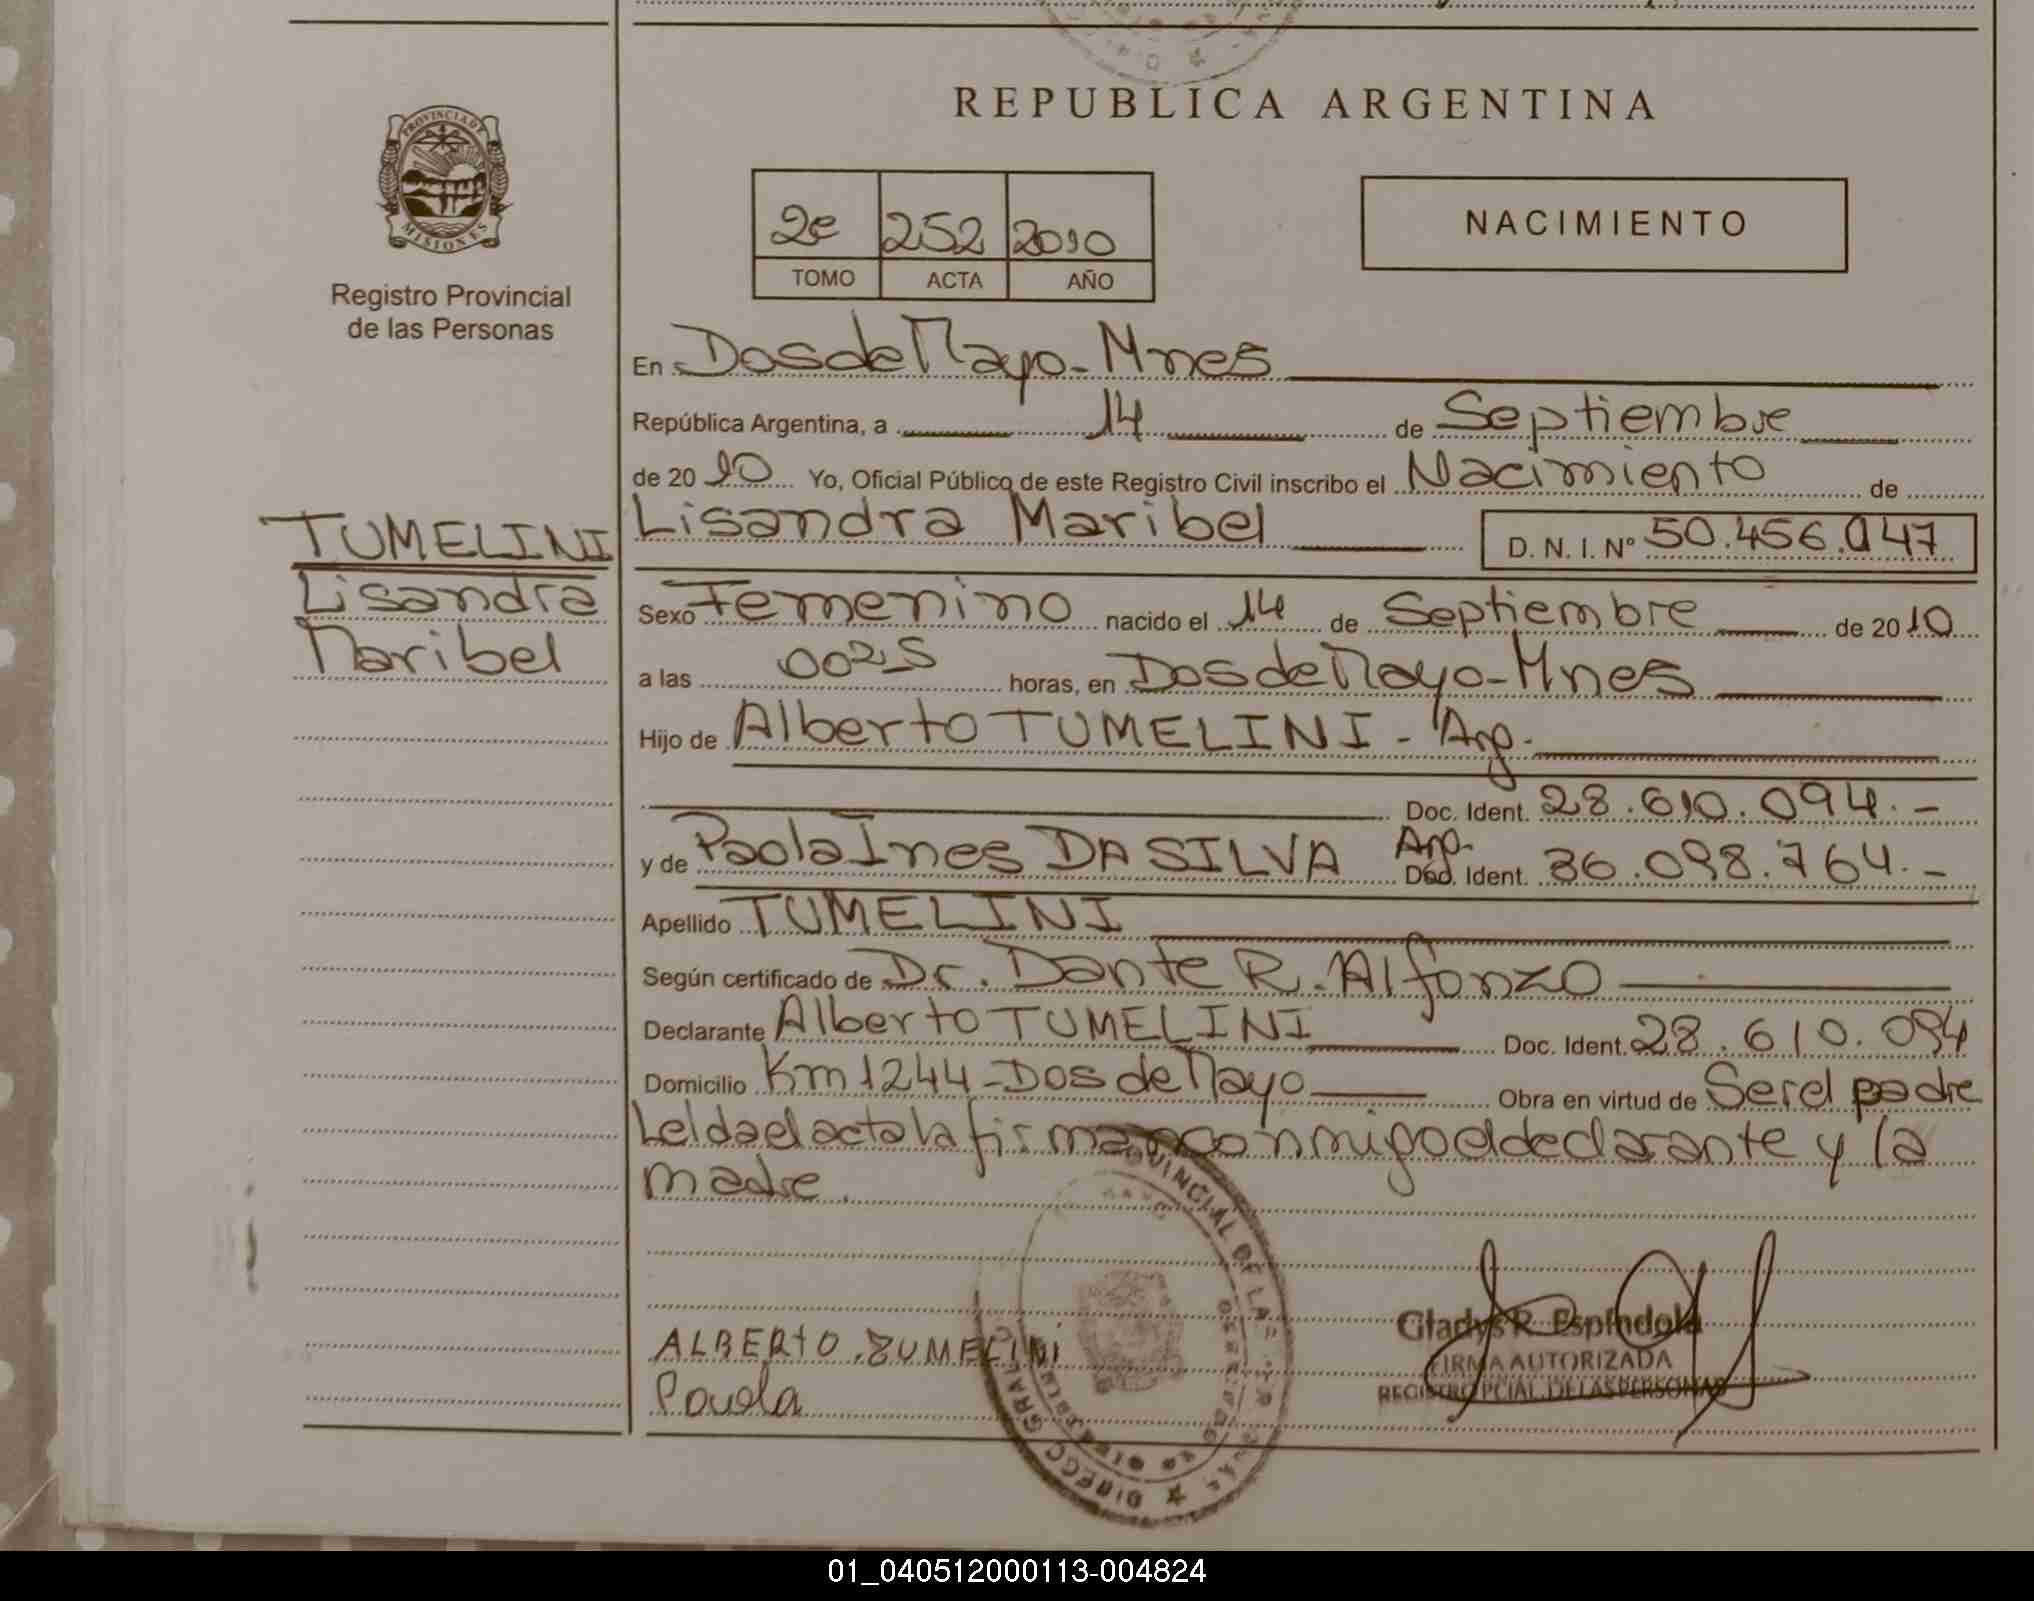 REPUBLICA ARGENTINA
PROVINCIA DE
MISIONES
Registro Provincial
de las Personas
2e 252 2010
TOMO ACTA AÑO
NACIMIENTO
En Dos de Mayo - Mnes
República Argentina, a 14 de Septiembre
de 2010 Yo, Oficial Público de este Registro Civil inscribo el Nacimiento de
TUMELINI
Lisandra
Maribel
Lisandra Maribel D. N. I. Nº 50.456.047
Sexo Femenino nacido el 14 de Septiembre de 2010
a las 0025 horas, en Dos de Mayo - Mnes
Hijo de Alberto TUMELINI - Arg.
Doc. Ident. 28.610.094.-
y de Paola Ines DA SILVA Arg. Doc. Ident. 36.098.764.-
Apellido TUMELINI
Según certificado de Dr. Dante R. Alfonzo
Declarante Alberto TUMELINI Doc. Ident. 28.610.094
Domicilio Km 1244 - Dos de Mayo Obra en virtud de Ser el padre
Leida el acta la firman conmigo el declarante y la
madre.
ALBERTO TUMELINI
Paola
Gladys R. Espindola
FIRMA AUTORIZADA
REGISTRO PCIAL. DE LAS PERSONAS
01_040512000113-004824